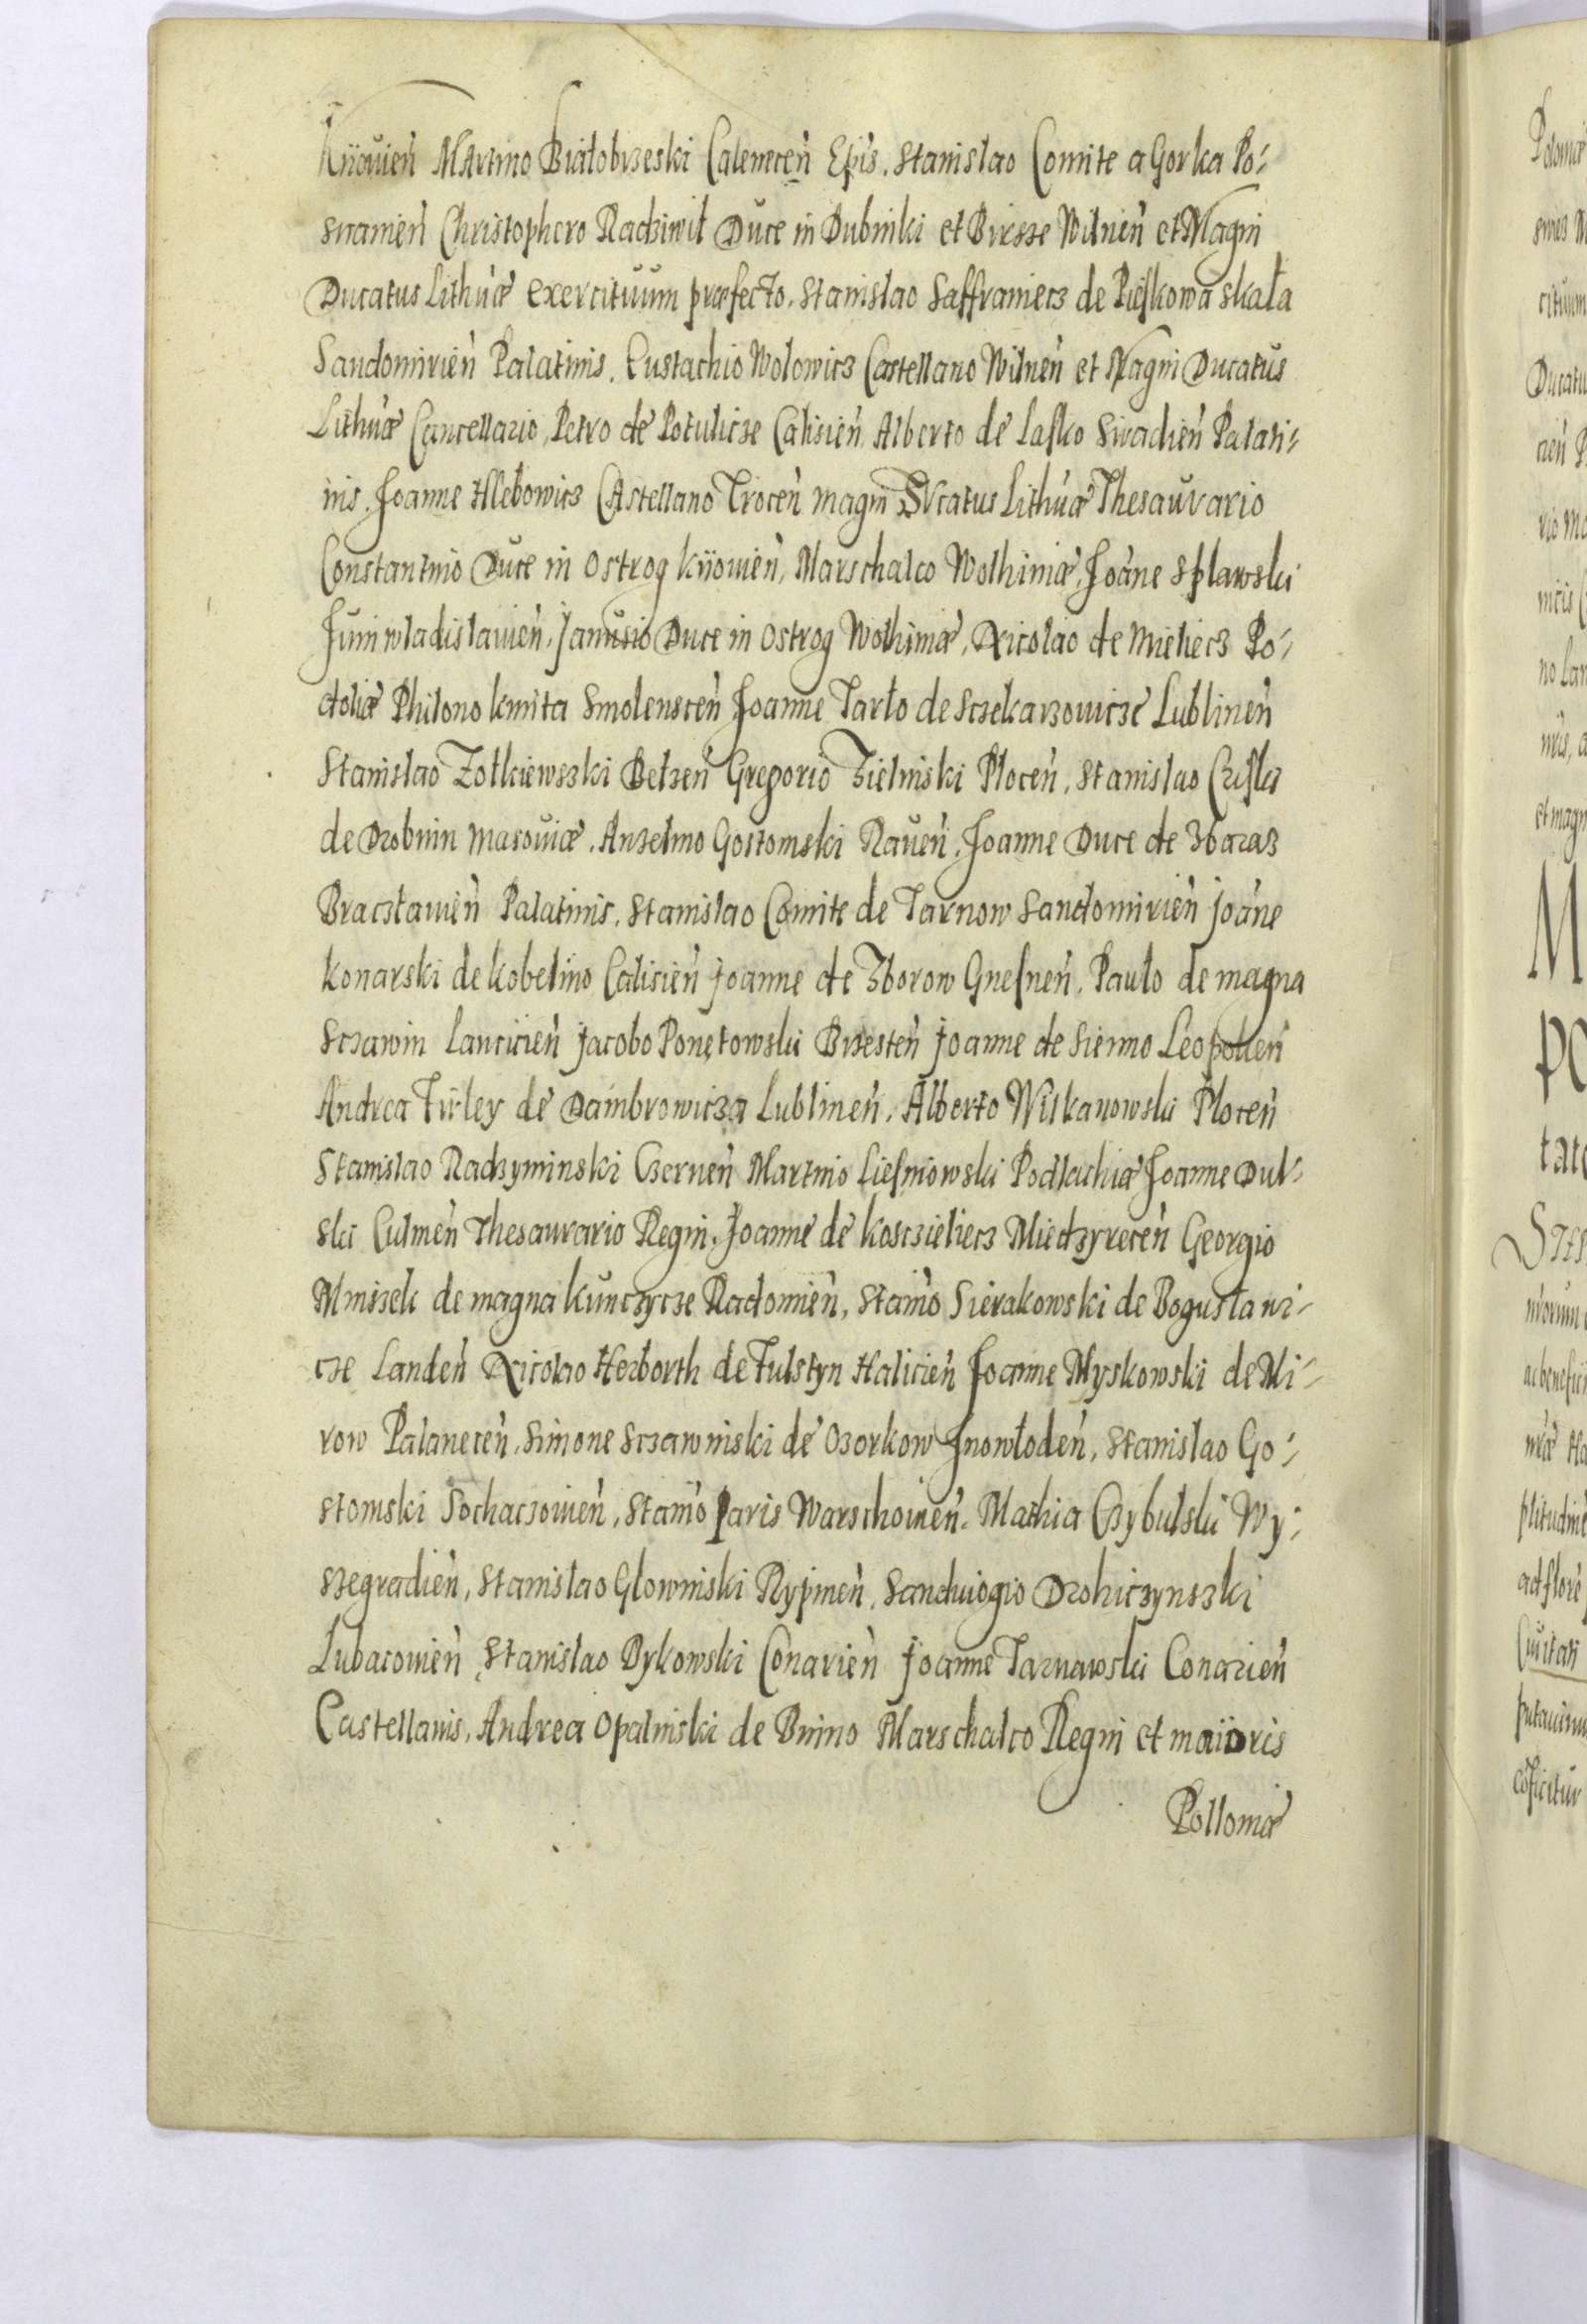 Kiiovieǹ Martino Białobrzeski Cameneceǹ Epis. Stanislao Comite a Gorka Po-
snanieǹ Christophoro Radziwił Duce in Dubinki et Birsze Wilneǹ et Magni
Ducatus Lithuæ exercituum præfecto. Stanislao Saffraniecz de Pieskowa skała
Sandomirieǹ Palatinis. Eustachio Wolowicz Castellano Wilneǹ et Magni Ducatus
Lithuæ Cancellario, Petro de Potulicze Calisieǹ Alberto de Lasko Siradieǹ Palati-
nis. Joanne Hlebowicz Castellano Troceǹ magni Ducatus Lithuæ Thesaurario
Constantino Duce in Ostrog kiiovieǹ, Marschalco Wolhiniæ, Joane Splawski
Juniwladislavieǹ, Janusio Duce in Ostrog Wolhiniæ, Nicolao de Mieliecz Po-
doliæ Philono kmita Smolensceǹ Joanne Tarło de Sczekarzovicze Lublineǹ
Stanislao Zołkiewszki Belzeǹ Gregorio Zielinski Ploceǹ, Stanislao Crisky
de Drobnin Masoviæ. Anzelmo Gostomski Raveǹ. Joanne Duce de Zbaraz
Bracżlavieǹ Palatinis. Stanislao Comite de Tarnow Sandomirieǹ joane
konarski de kobelino Calisieǹ joanne de Zborow Gnesneǹ. Paulo de magna
Sczawin Lancicieǹ jacobo Ponętowski Brzesteǹ joanne de Sienno Leopolieǹ
Andrea Firley de Dambrowicza Lublineǹ. Alberto Wilkanowski Ploceǹ
Stanislao Radzyminski Czerneǹ Martino Liesniowski Podlachiæ Joanne Dul-
ski Culmeǹ Thesaurario Regni, Joanne de kosczieliecz Miedzyreceǹ Georgio
Mniszek de magna kunczycze Radomieǹ, Stano Sierakowski de Bogusławi-
cze Landeǹ Nicolao Herborth de Fulstyn Halicieǹ Joanne Myskowski de Mi-
row Palaneceǹ, Simone Sczawinski de Ozorkow Jnowłodeǹ, Stanislao Go-
stomski Sochaczovieǹ, Stano Paris Warschovieǹ. Mathia Czybulski Wy-
szegradieǹ, Stanislao Glowinski Rypineǹ. Sandivogio Drohiczynszki
Lubacovieǹ Stanislao Bykowski Conarieǹ joanne Tarnawski Conarieǹ
Castellanis. Andrea Opalinski de Bnino Marschalco Regni et maiioris
Polloniæ